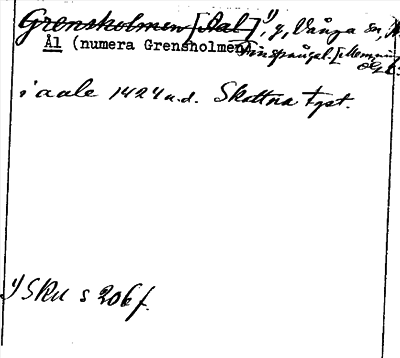 Grensholmen [Aal] 1), g, Vånga sn,
Ål (numera Grensholmen) Finspångal. [Memmings
i aale 1424 u.d. Skottna tyst.
1) SRU s 206 f.